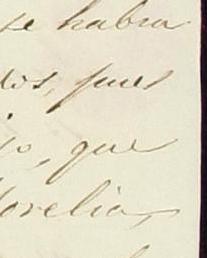 se habra
dis, pues
jo, que
Morelia,